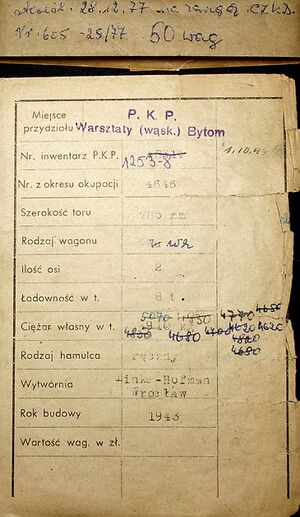 28.12.77 na
Nr. 605-25/77 50 wag
Miejsce przydziału P. K. P.
Warsztaty (wąsk.) Bytom
Nr. inwentarz P.K.P. 1253-8
Nr. z okresu okupacji 4646
Szerokość toru 785 mm
Rodzaj wagonu
Ilość osi 2
Ładowność w t. 8 t.
Ciężar własny w t. 5070 4930 4770 4650
4830 4680 4700 4620 4620
4820
4680
Rodzaj hamulca ręczny
Wytwórnia Linke-Hofman
Wrocław
Rok budowy 1943
Wartość wag. w zł.